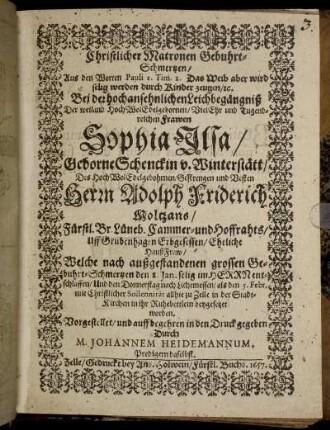 3
Christlicher Matronen Gebuhrt-
Schmertzen/
Aus den Worten Pauli 1. Tim. 2. Das Weib aber wird
selig werden durch Kinder zeugen/ꝛc.
Bei der hochansehnlichen Leichbegängniß
Der weiland HochWolEdelgebornen/ Viel Ehr und Tugend-
reichen Frawen
Sophia Ilsa/
Geborne Schenckin v. Winterstätt/
Des HochWolEdelgebohrnen/Gestrengen und Vesten
Herrn Adolph Friderich
Moltzans/
Fürstl. Br. Lüneb. Cammer- und Hoffrahts/
uff Grubenhagen Erbgesessen/ Eheliche
HaußFraw/
Welche nach außgestandenen grossen Ge-
buhrts-Schmertzen den 8. Jan. selig im HERRN ent-
schlaffen/ Und den Donnerstag nach Lichtmessen/ als den 5. Febr.
mit Christlicher Solennität alhie zu Zelle in der Stadt-
Kirchen in ihr Ruhebetlein beygesetzet
worden.
Vorgestellet/ und auff begehren in den Druck gegeben
Durch
M. JOHANNEM HEIDEMANNUM,
Predigern daselbst.
Zelle/ Gedruckt bey And. Holwein/ Fürstl. Buchd. 1657.